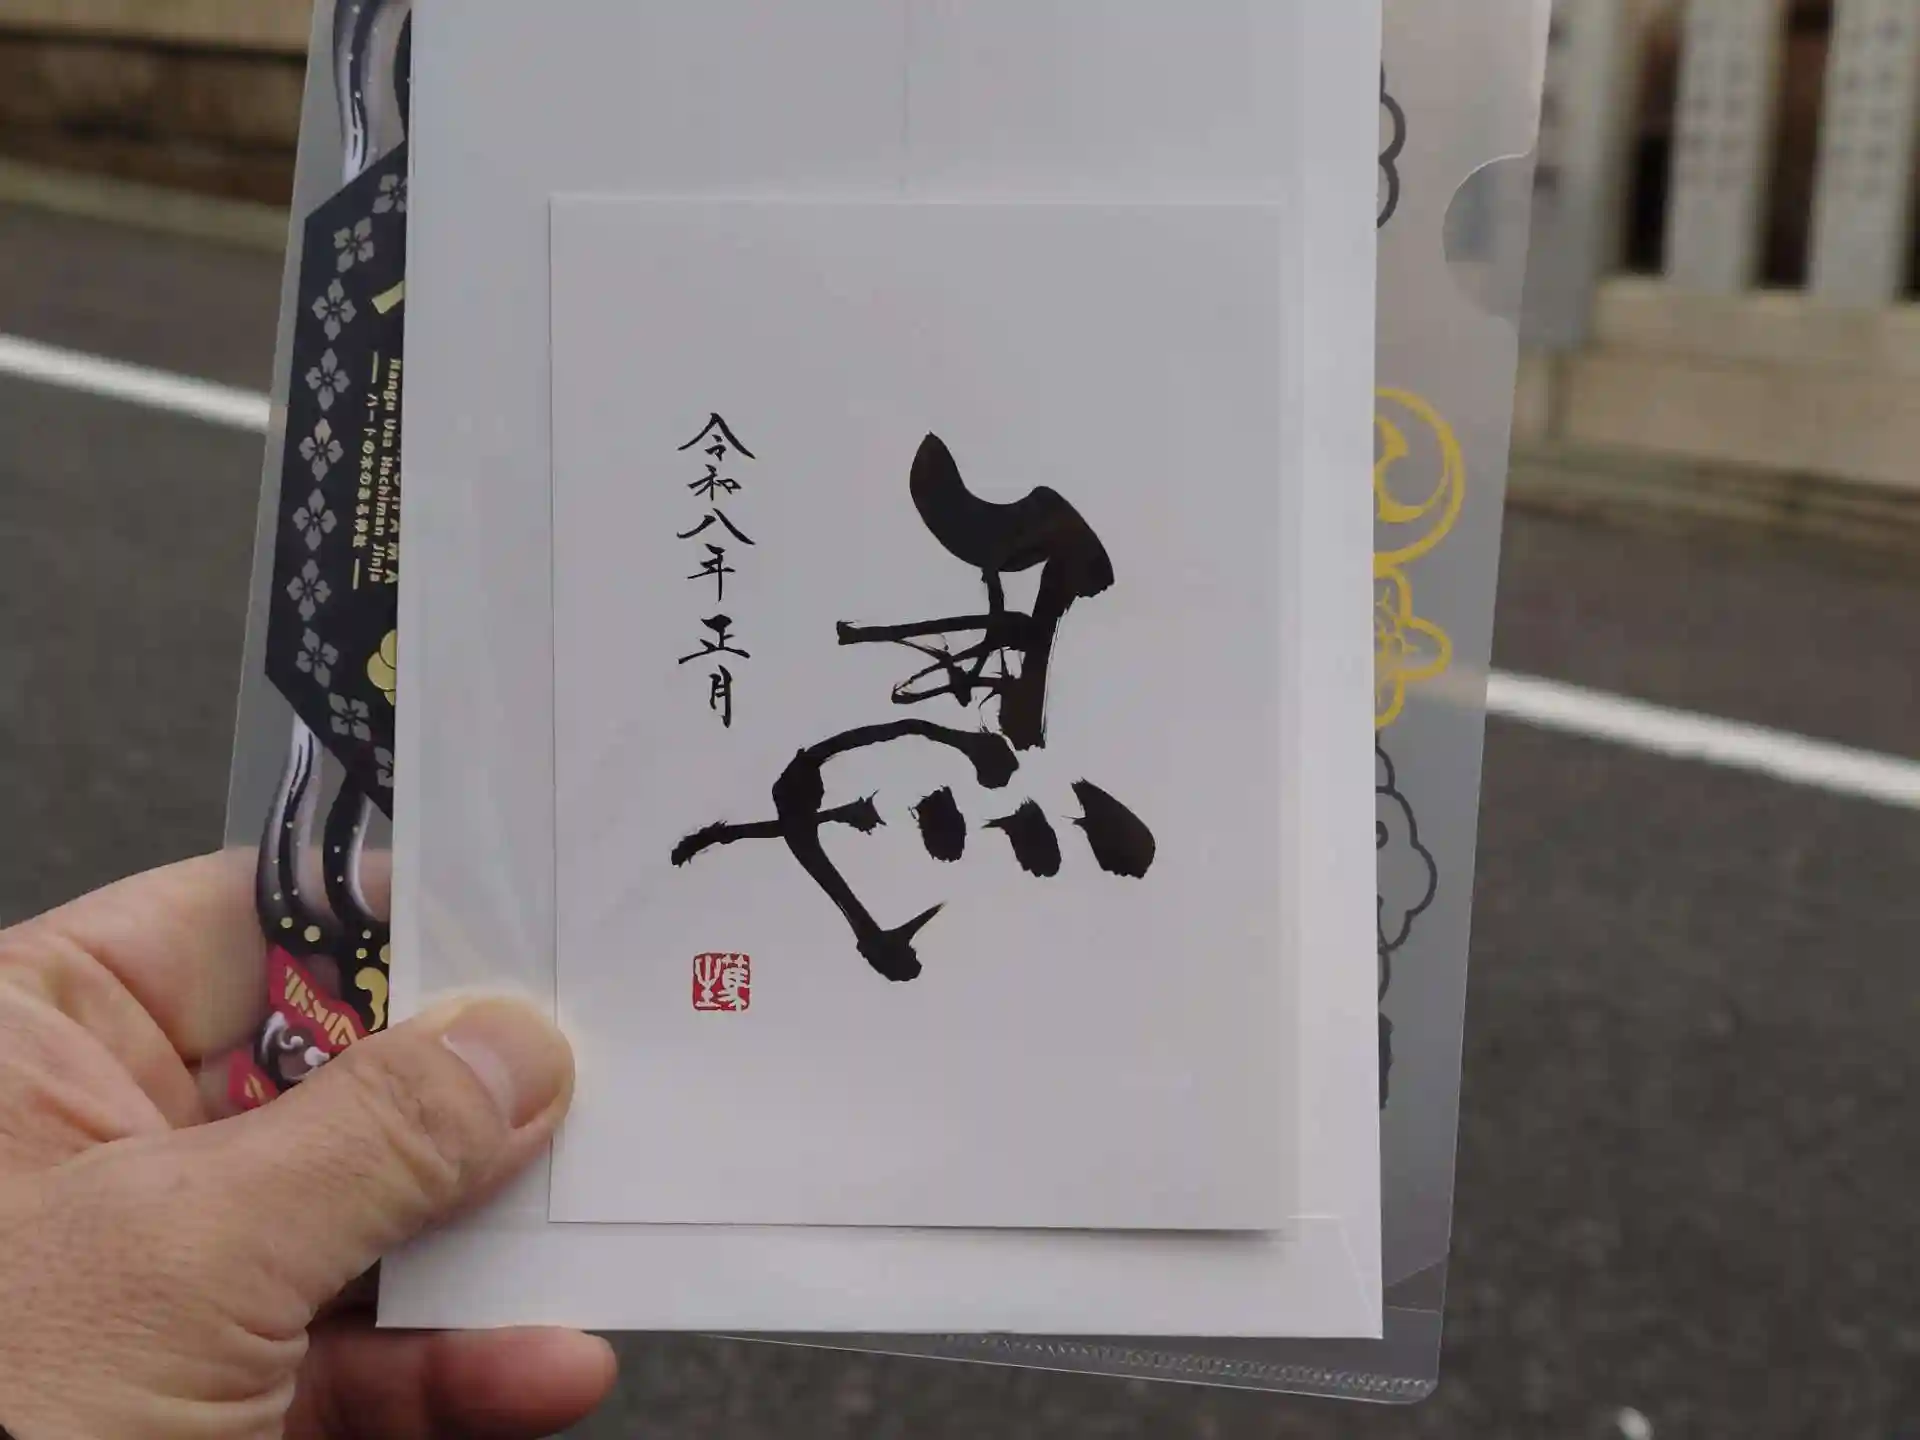 馬
令和八年正月
Nangu Usa Hachiman Jinja
ハートの木のある神社